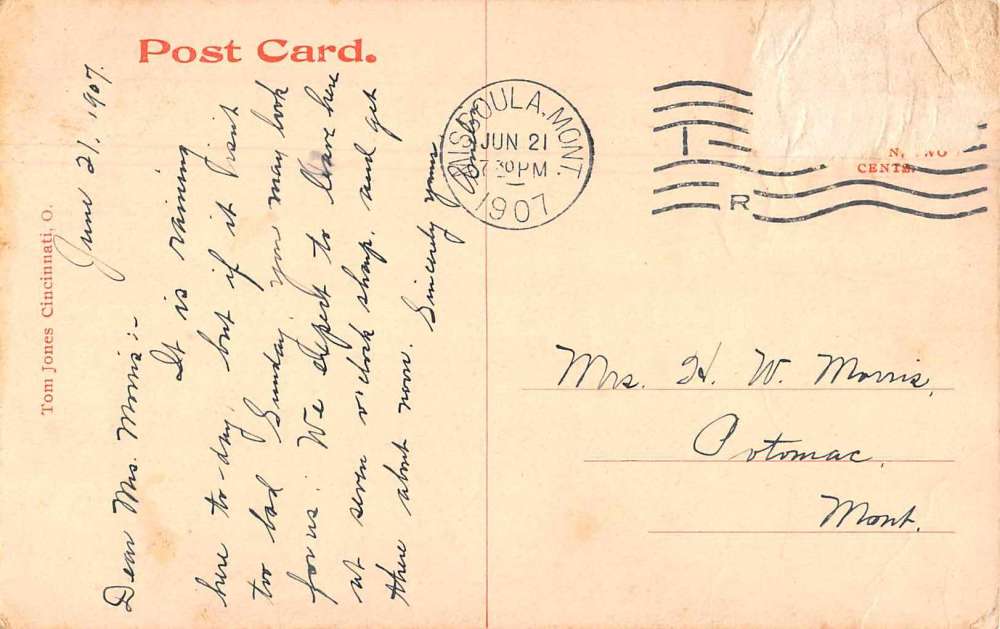 Post Card.
Tom Jones Cincinnati, O.
June 21. 1907.
Dear Mrs. Morris:-
It is raining
here to-day but if it isn't
too bad Sunday you may look
for us. We expect to leave here
at seven o'clock sharp. and get
there about noon.
Sincerely yours
MISSOULA, MONT.
JUN 21
7 30 PM
1907
I
R
CENTS.
Mrs. H. W. Morris,
Potomac,
Mont.